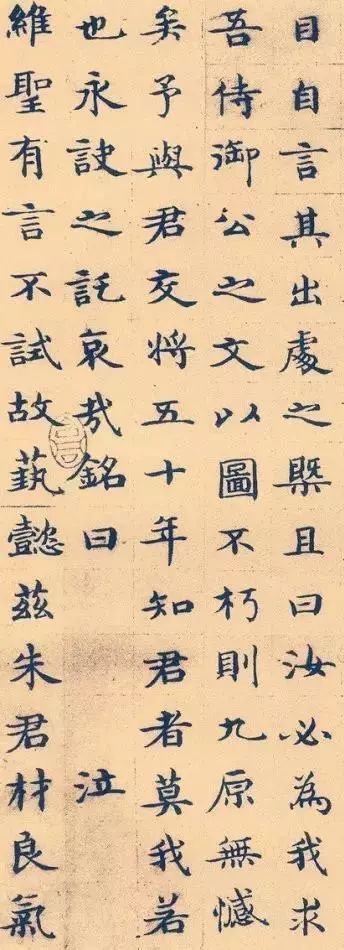 目自言其出處之槩且曰汝必為我求
吾侍御公之文以圖不朽則九原無憾
矣予與君交將五十年知君者莫我若
也永訣之託哀哉銘曰 泣
維聖有言不試故藝懿茲朱君材良氣